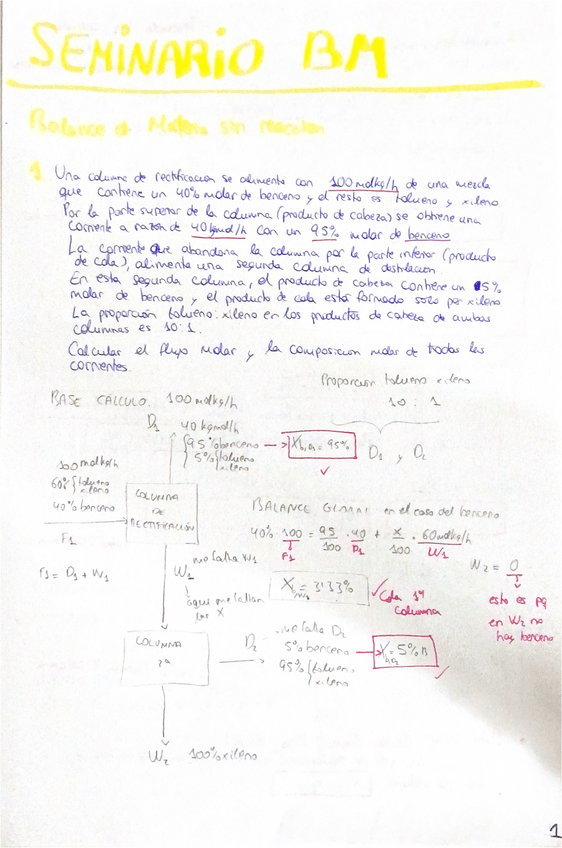 SEMINARIO BM
Balance de Materia sin reacción
1 Una columna de rectificacion se alimenta con 100molkg/h de una mezcla
que contiene un 40% molar de benceno y el resto es tolueno y xileno
Por la parte superior de la columna (producto de cabeza) se obtiene una
corriente a razón de 40kgmol/h con un 95% molar de benceno
La corriente que abandona la columna por la parte inferior (producto
de cola), alimenta una segunda columna de destilacion
En esta segunda columna, el producto de cabeza contiene un 5%
molar de benceno y el producto de cola está formado solo por xileno
La proporción tolueno:xileno en los productos de cabeza de ambas
columnas es 10:1.
Calcular el flujo molar y la composicion molar de todas las
corrientes.
Proporcion tolueno xileno
10 : 1
D1 y D2
BASE CÁLCULO: 100molkg/h
D1 40kgmol/h
95% benceno → Xb,D1 = 95%
5% tolueno
xileno
100molkg/h
60% tolueno
xileno
40% benceno
F1
COLUMNA
DE
RECTIFICACIÓN
F1 = D1 + W1
BALANCE GLOBAL en el caso del benceno
40% · 100 = 95/100 · 40 + x/100 · 60molkg/h
F1 D1 W1
me falta W1
W1
aquí me faltan
las X
X = 3'33%
Cola 1ª
columna
W2 = 0
esto es pq
en W2 no
hay benceno
COLUMNA
2ª
D2 me falta D2
5% benceno → X = 5% B
95% tolueno
xileno
W2 100% xileno
1